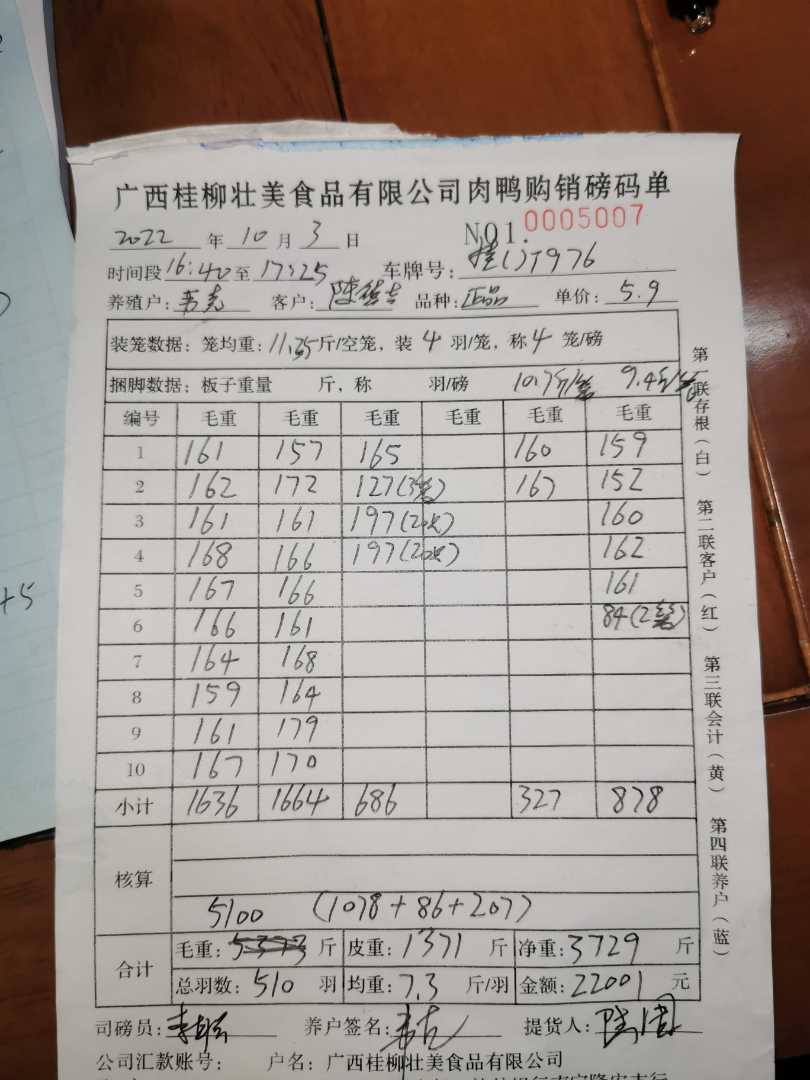 广西桂柳壮美食品有限公司肉鸭购销磅码单
2022 年 10 月 3 日 NO1. 0005007
时间段 16:40 至 17:25 车牌号: 976
养殖户: 韦克 客户: 陈 品种: 正品 单价: 5.9
装笼数据: 笼均重: 11.35 斤/空笼, 装 4 羽/笼, 称 4 笼/磅
捆脚数据: 板子重量 斤, 称 羽/磅 10.7斤/笼 9.4斤/笼
编号 毛重 毛重 毛重 毛重 毛重 毛重
1 161 157 165 160 159
2 162 172 127(3笼) 167 152
3 161 161 197(20只) 160
4 168 166 197(20只) 162
5 167 166 161
6 166 161 84(2笼)
7 164 168
8 159 164
9 161 179
10 167 170
小计 1636 1664 686 327 878
核算
5100 (1078+86+207)
合计 毛重: 斤 皮重: 1371 斤 净重: 3729 斤
总羽数: 510 羽 均重: 7.3 斤/羽 金额: 22001 元
司磅员: 养户签名: 韦克 提货人:
公司汇款账号: 户名: 广西桂柳壮美食品有限公司
第一联存根(白) 第二联客户(红) 第三联会计(黄) 第四联养户(蓝)
+5